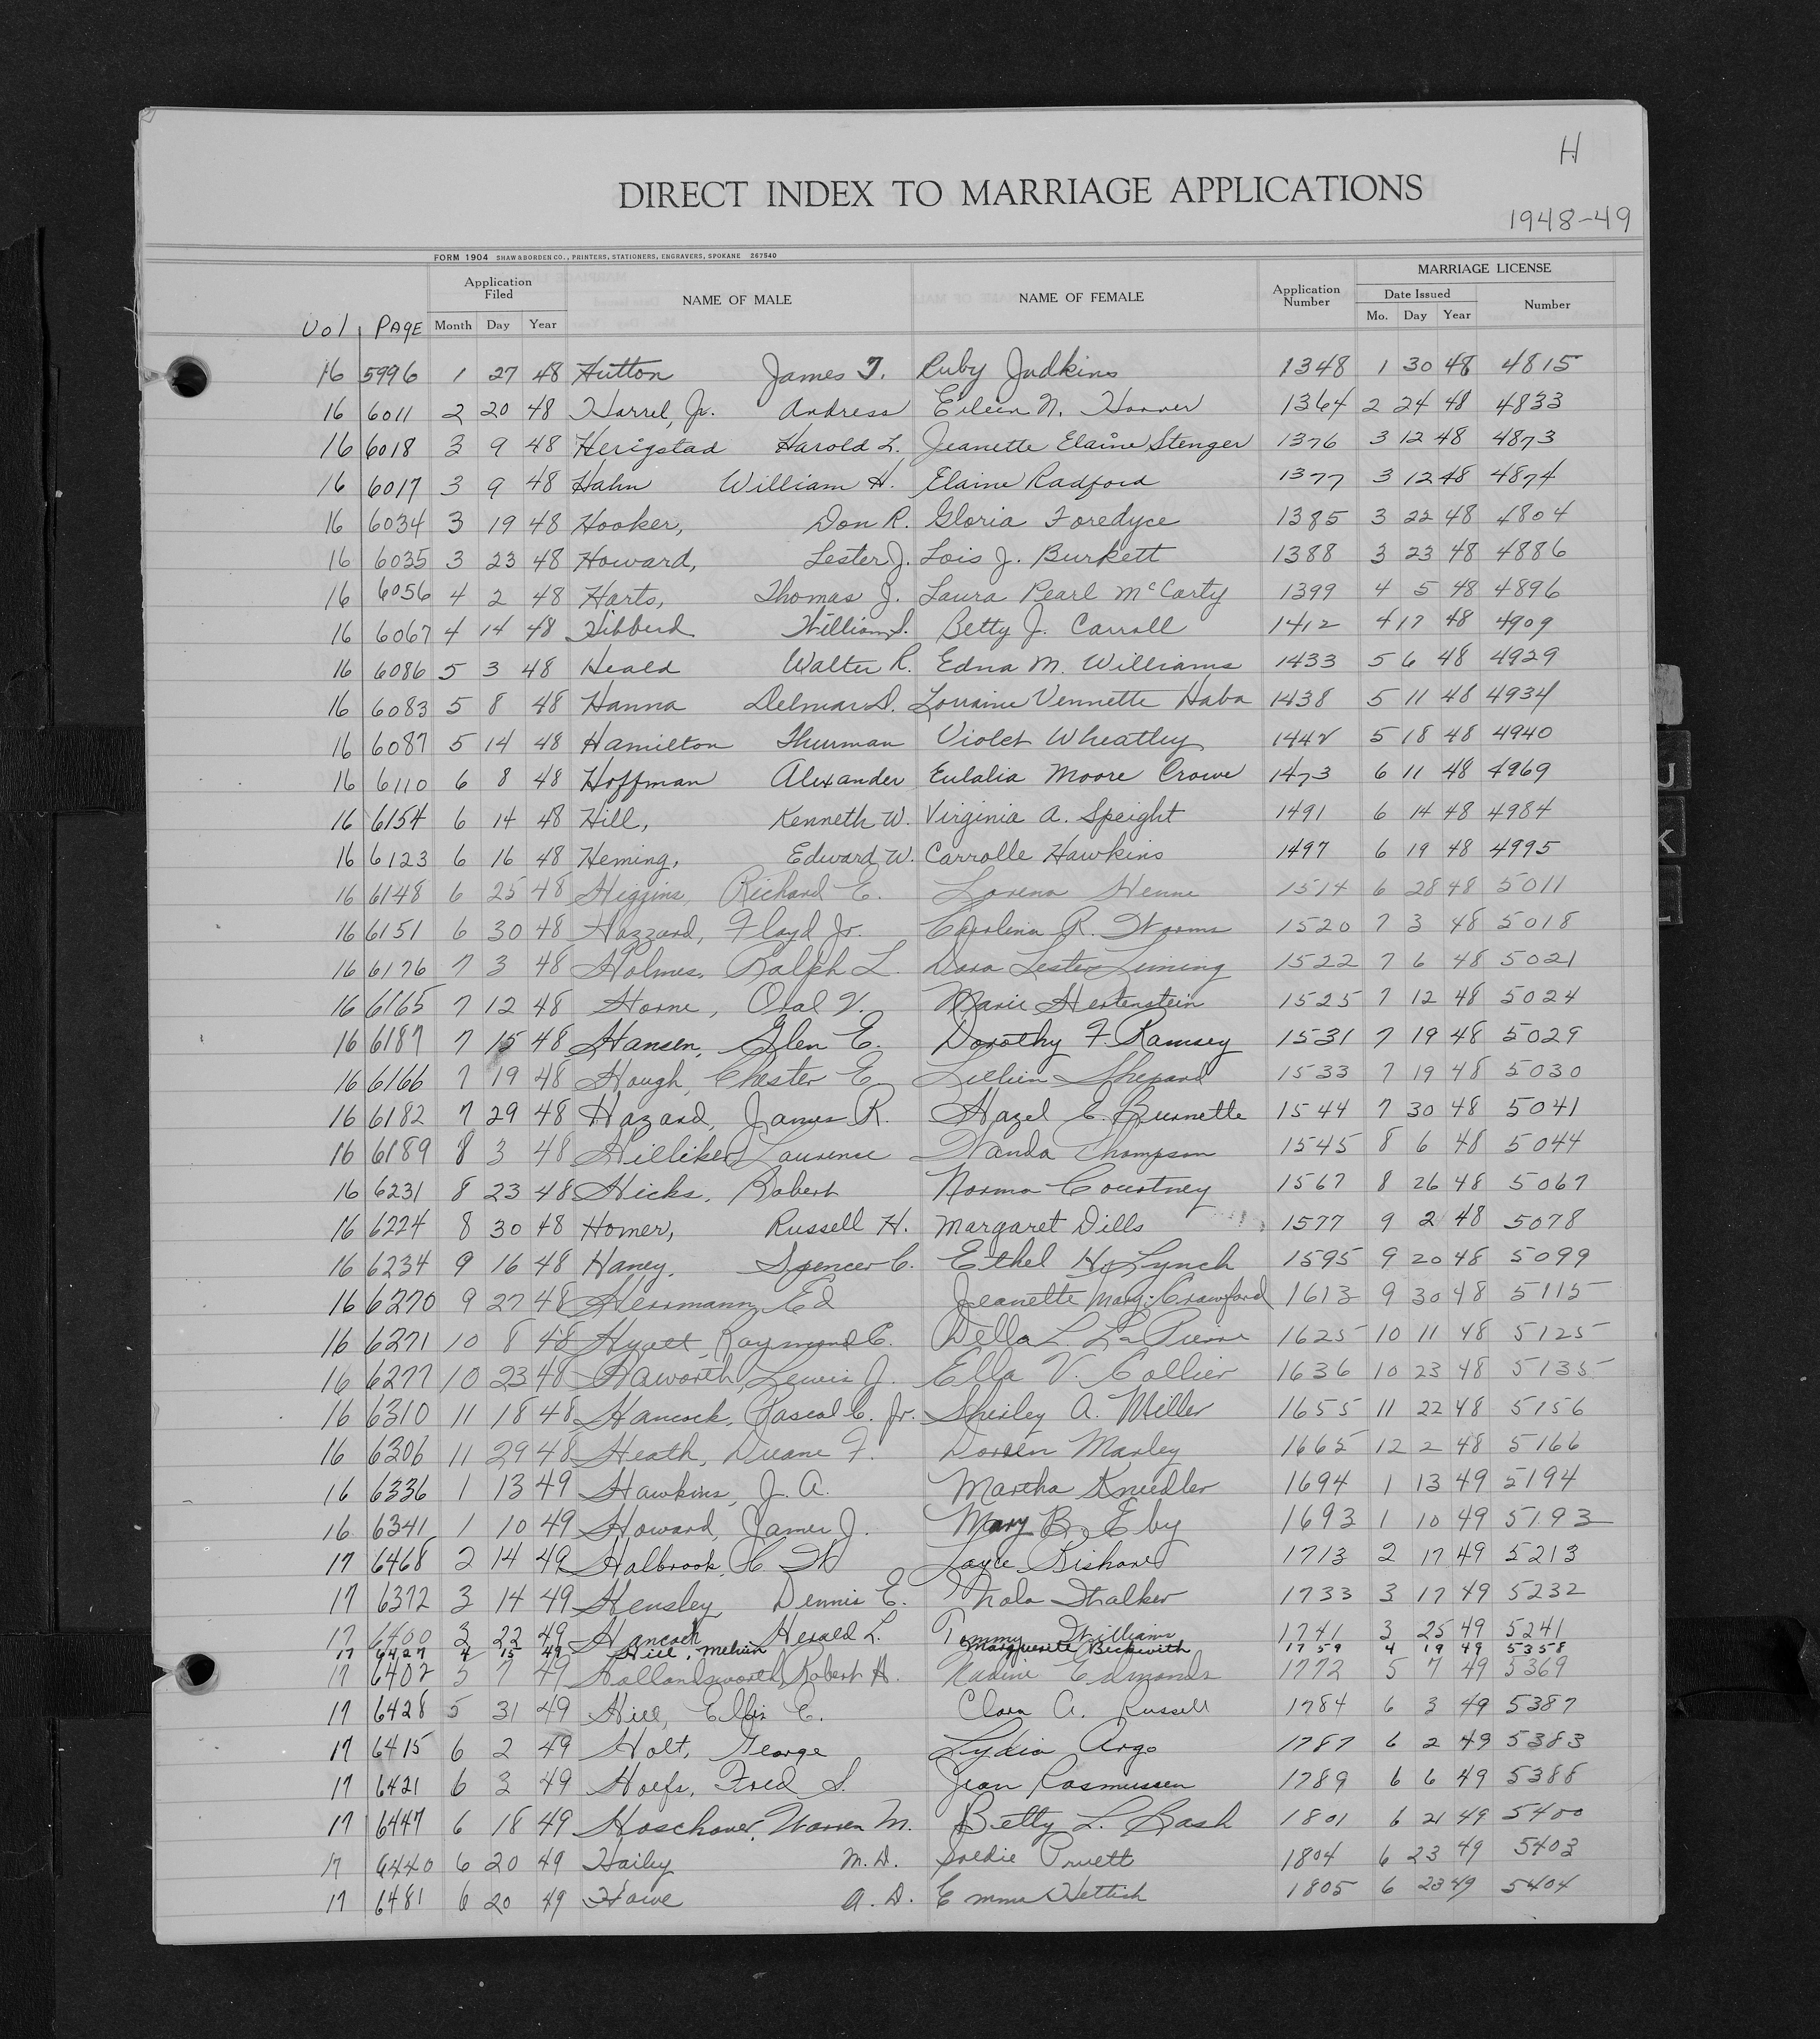 H
DIRECT INDEX TO MARRIAGE APPLICATIONS
1948-49
FORM 1904 SHAW & BORDEN CO., PRINTERS, STATIONERS, ENGRAVERS, SPOKANE 267540
Vol PAGE Application Filed Month Day Year NAME OF MALE NAME OF FEMALE Application Number MARRIAGE LICENSE Date Issued Mo. Day Year Number
16 5996 1 27 48 Hutton James T. Ruby Judkins 1348 1 30 48 4815
16 6011 2 20 48 Harrel, Jr. Andress Eileen N. Hoover 1364 2 24 48 4833
16 6018 3 9 48 Herigstad Harold L. Jeanette Elaine Stenger 1376 3 12 48 4873
16 6017 3 9 48 Hahn William H. Elaine Radford 1377 3 12 48 4874
16 6034 3 19 48 Hooker, Don R. Gloria Foredyce 1385 3 22 48 4804
16 6035 3 23 48 Howard, Lester J. Lois J. Burkett 1388 3 23 48 4886
16 6056 4 2 48 Harts, Thomas J. Laura Pearl McCarty 1399 4 5 48 4896
16 6067 4 14 48 Hibberd William S. Betty J. Carroll 1412 4 17 48 4909
16 6086 5 3 48 Heald Walter R. Edna M. Williams 1433 5 6 48 4929
16 6083 5 8 48 Hanna Delmar D. Lorraine Vennette Haba 1438 5 11 48 4934
16 6087 5 14 48 Hamilton Thurman Violet Wheatley 1442 5 18 48 4940
16 6110 6 8 48 Hoffman Alexander Eulalia Moore Crowe 1473 6 11 48 4969
16 6154 6 14 48 Hill, Kenneth W. Virginia A. Speight 1491 6 14 48 4984
16 6123 6 16 48 Heming, Edward W. Carrolle Hawkins 1497 6 19 48 4995
16 6148 6 25 48 Higgins, Richard E. Lorena Henne 1514 6 28 48 5011
16 6151 6 30 48 Hazzard, Floyd Jr. Carolina R. Worms 1520 7 3 48 5018
16 6176 7 3 48 Holmes, Ralph L. Dora Lester Liming 1522 7 6 48 5021
16 6165 7 12 48 Horne, Oral V. Marie Hertenstein 1525 7 12 48 5024
16 6187 7 15 48 Hansen, Glen E. Dorothy F. Ramsey 1531 7 19 48 5029
16 6166 7 19 48 Hough, Chester E. Lillien Shepard 1533 7 19 48 5030
16 6182 7 29 48 Hazard, James R. Hazel C. Burnette 1544 7 30 48 5041
16 6189 8 3 48 Hilliker, Laurence Wanda Thompson 1545 8 6 48 5044
16 6231 8 23 48 Hicks, Robert Norma Courtney 1567 8 26 48 5067
16 6224 8 30 48 Homer, Russell H. Margaret Dills 1577 9 2 48 5078
16 6234 9 16 48 Haney, Spencer C. Ethel H. Lynch 1595 9 20 48 5099
16 6270 9 27 48 Herrmann, Ed Jeanette Mary Crawford 1613 9 30 48 5115
16 6271 10 8 48 Hyatt, Raymond C. Della L. La Pierre 1625 10 11 48 5125
16 6277 10 23 48 Haworth, Lewis J. Ella V. Collier 1636 10 23 48 5135
16 6310 11 18 48 Hancock, Pascal C. Jr. Shirley A. Miller 1655 11 22 48 5156
16 6306 11 29 48 Heath, Duane F. Doreen Marley 1665 12 2 48 5166
16 6336 1 13 49 Hawkins, J. A. Martha Kneedler 1694 1 13 49 5194
16 6341 1 10 49 Howard, James J. Mary B. Eby 1693 1 10 49 5193
17 6468 2 14 49 Holbrook, C W Rishoned 1713 2 17 49 5213
17 6372 3 14 49 Hensley Dennis E. Nola Walker 1733 3 17 49 5232
17 6400 3 22 49 Hancock Herald L. Tommy Williams 1741 3 25 49 5241
17 6427 4 15 49 Hill, Melvin Marguerite Beckwith 1759 4 19 49 5358
17 6402 5 7 49 Hollandsworth, Robert H. Nadine Edmonds 1772 5 7 49 5369
17 6428 5 31 49 Hill, E. Clara A. Russell 1784 6 3 49 5387
17 6415 6 2 49 Holt, George Lydia Argo 1787 6 2 49 5383
17 6421 6 3 49 Hoefs, Fred S. Jean Rasmussen 1789 6 6 49 5388
17 6447 6 18 49 Hoschouer, Warren M. Betty L. Bash 1801 6 21 49 5400
17 6440 6 20 49 Hailey M. D. Goldie Pruett 1804 6 23 49 5403
17 6481 6 20 49 Howe A. D. Emma Hettich 1805 6 23 49 5404
U
K
L